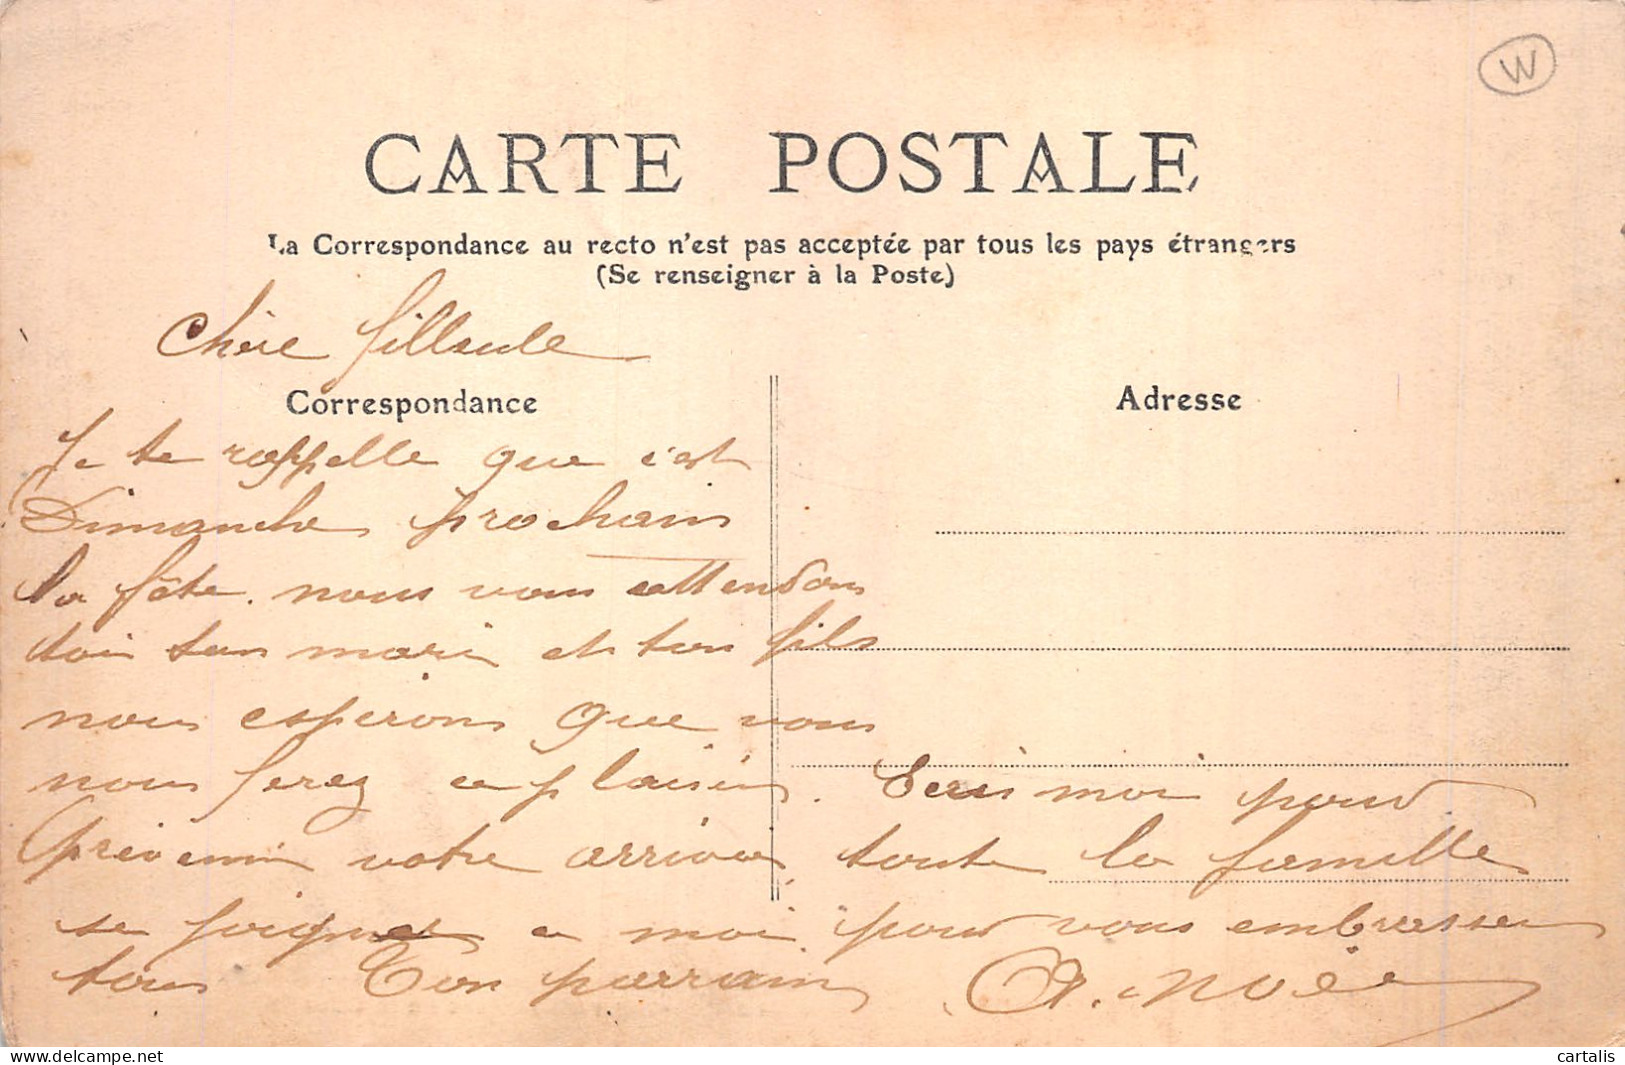 W
CARTE POSTALE
La Correspondance au recto n'est pas acceptée par tous les pays étrangers
(Se renseigner à la Poste)
Chère filleule
Correspondance
Adresse
Je te rappelle que c'est
Dimanche prochain
la fête. nous vous attendons
toi ton mari et ton fils
nous espérons que vous
nous ferez ce plaisir. Ecris moi pour
prévenir votre arrivée, toute la famille
se joignes a moi pour vous embrasser
tous Ton parrain A. Noée
www.delcampe.net
cartalis